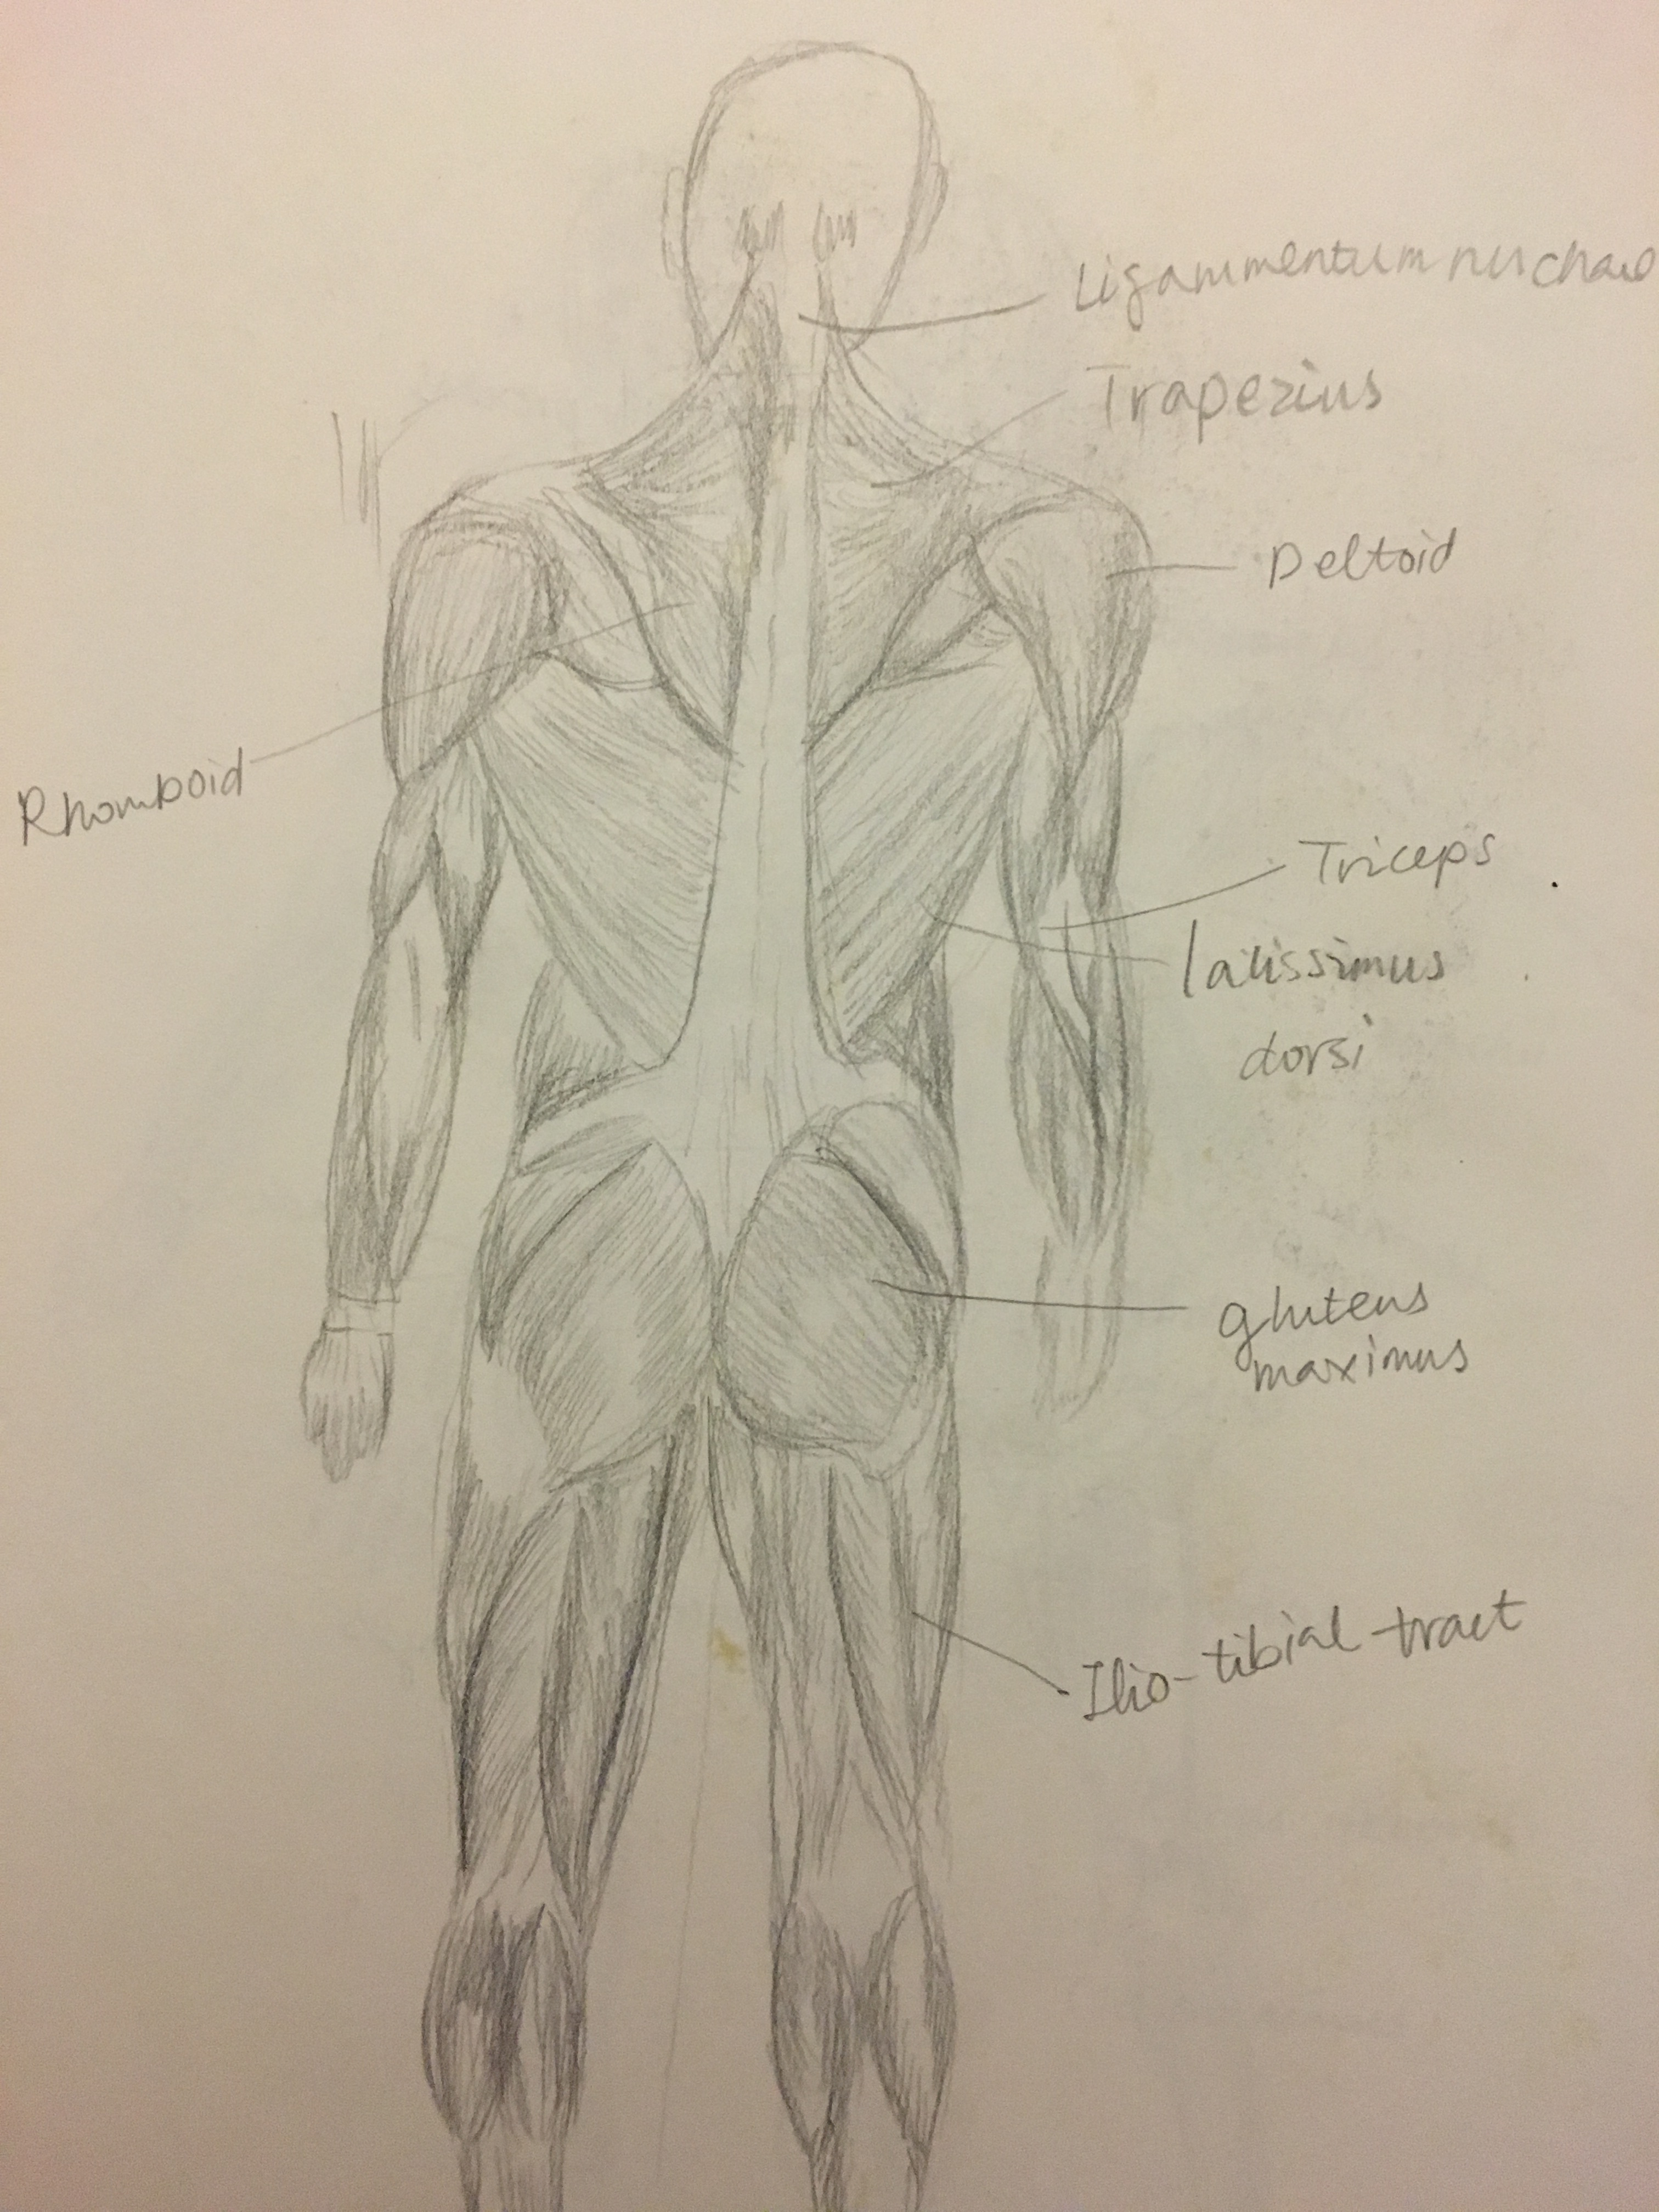 Ligammentum nuchae
Trapezius
Deltoid
Rhomboid
Triceps
latissimus
dorsi
gluteus
maximus
Ilio-tibial tract